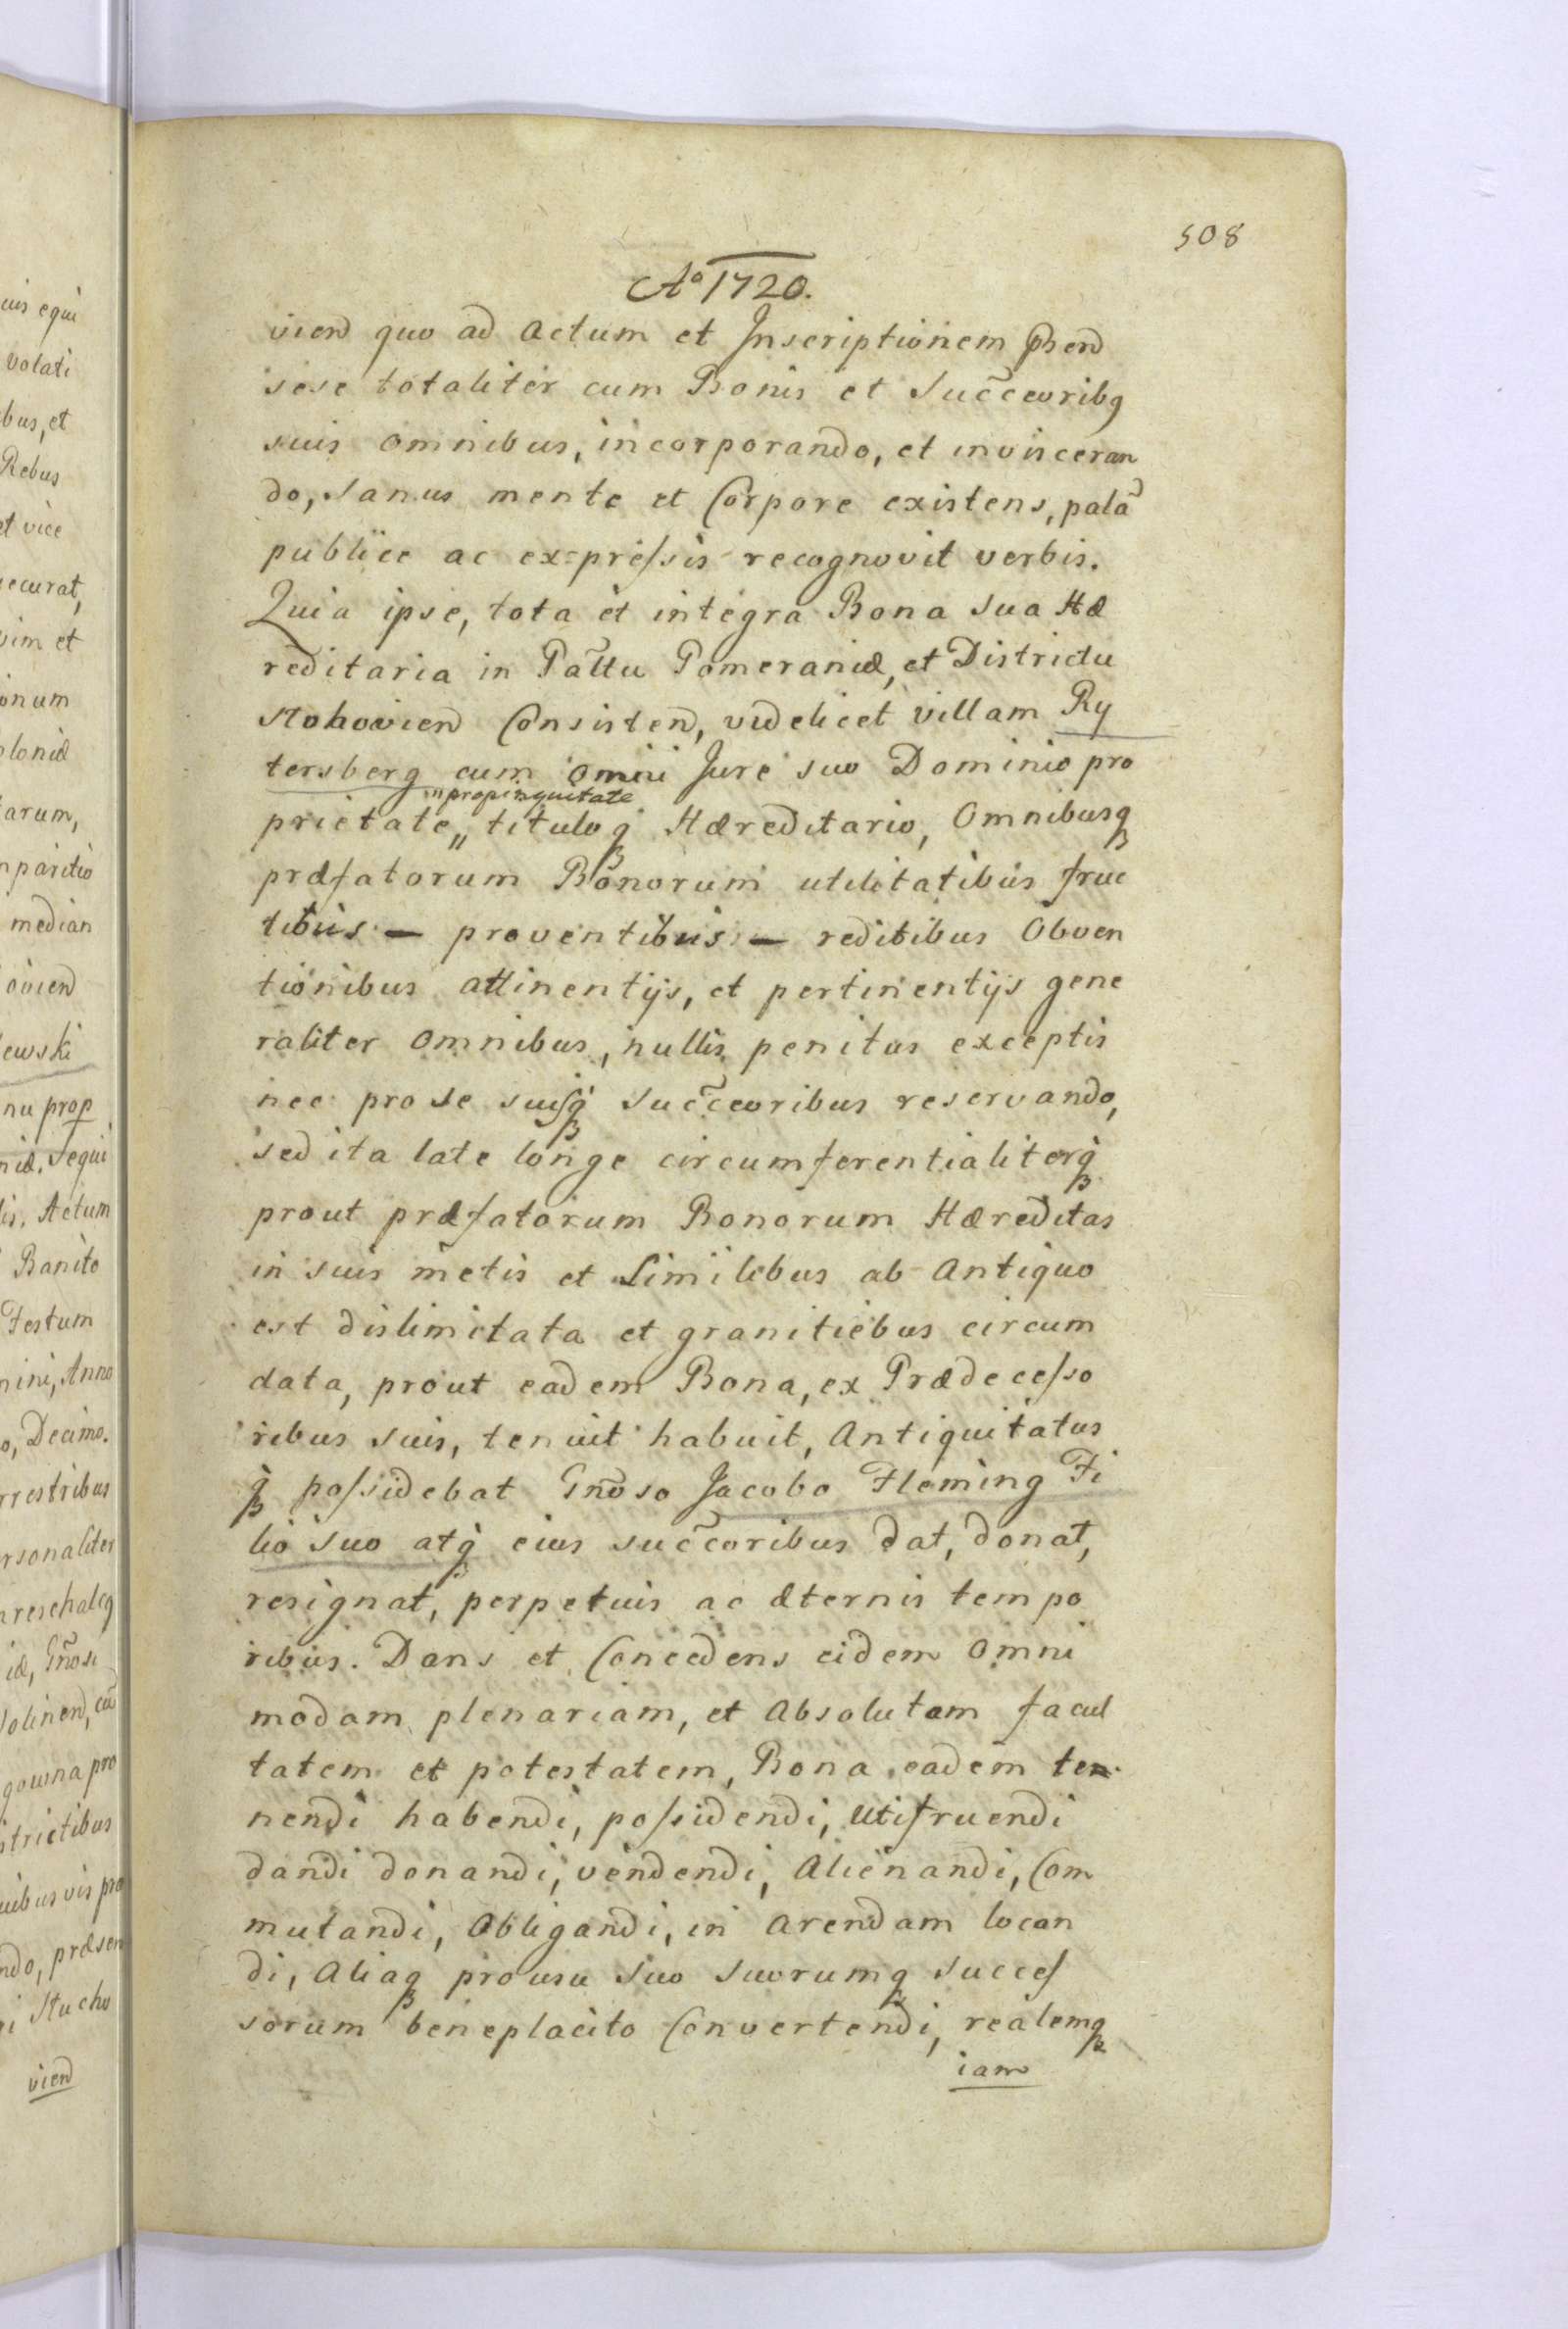 508
Aᵒ 1720.
viend quo ad Actum et Inscriptionem Pbend
sese totaliter cum Bonis et Succ̃eoribq
suis omnibus, incorporando, et invisceran
do, Sanus mente et Corpore existens, palã
publice ac ex=preſsis recognovit verbis.
Quia ipse, tota et integra Bona sua Hæ
reditaria in Pal̃tu Pomeraniæ, et Districtu
Stohoviend Consistend, videlicet villam Ry
tersberg cum omni Jure suo Dominio pro
propinquitate
prietate,, tituloq Hæreditario, Omnibusq
præfatorum Bonorum utilitatibus fruc
tibus — proventibus — reditibus Obven
tionibus attinentijs, et pertinentijs gene
raliter omnibus, nullis penitus exceptis
nec pro se suiſq succ̃eoribus reservando,
sed ita late longe circumferentialiterq
prout præfatorum Bonorum Hæreditas
in suis metis et Limitibus ab Antiquo
est dislimitata et granitiebus circum
data, prout eadem Bona, ex Prædeceſso
ribus suis, tenuit habuit, Antiquitatus
q poſsidebat Gnõso Jacobo Fleming Fi
lio suo atq eius succ̃oribus dat, donat,
resignat, perpetuis ac æternis tempo
ribus. Dans et Concedens eidem omni
modam plenariam, et Absolutam facul
tatem et potestatem, Bona eadem te
nendi habendi, poſsidendi, Utifruendi
dandi donandi, vendendi, Alienandi, Com
mutandi, Obligandi, in Arendam locan
di, Aliaq pro usu suo suorumq succeſ
sorum beneplacito Convertendi, realemq
iam